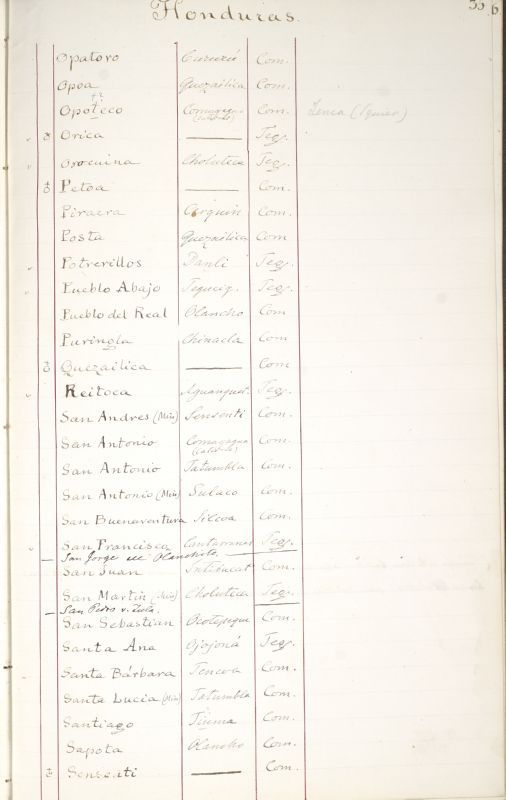 Honduras.
Opatoro Com.
Opoa Quezailica Com.
Opoteco Comayagua Com. Lenca (Squier)
Orica — Teg.
Orocuina Choluteca Teg.
Petoa — Com.
Piraera Cerquin Com.
Posta Quezailica Com
Potrerillos Danli Teg.
Pueblo Abajo Teg.
Pueblo del Real Olancho Com
Puringla Chinacla Com
Quezailica — Com
Reitoca Teg.
San Andres (Min) Sensenti Com.
San Antonio Comayagua Com.
San Antonio Tatumbla Com.
San Antonio (Min) Sulaco Com.
San Buenaventura Com.
San Francisco Cantarranas Teg.
San Jorge de Olanchito —
San Juan Com.
San Martin (Min) Choluteca Teg.
San Pedro v. Zula.
San Sebastian Ocotepeque Com.
Santa Ana Ojojoná Teg.
Santa Bárbara Tencoa Com.
Santa Lucia (Min) Tatumbla Com.
Santiago Tiuma Com.
Sapota Olancho Com.
Sensenti — Com.